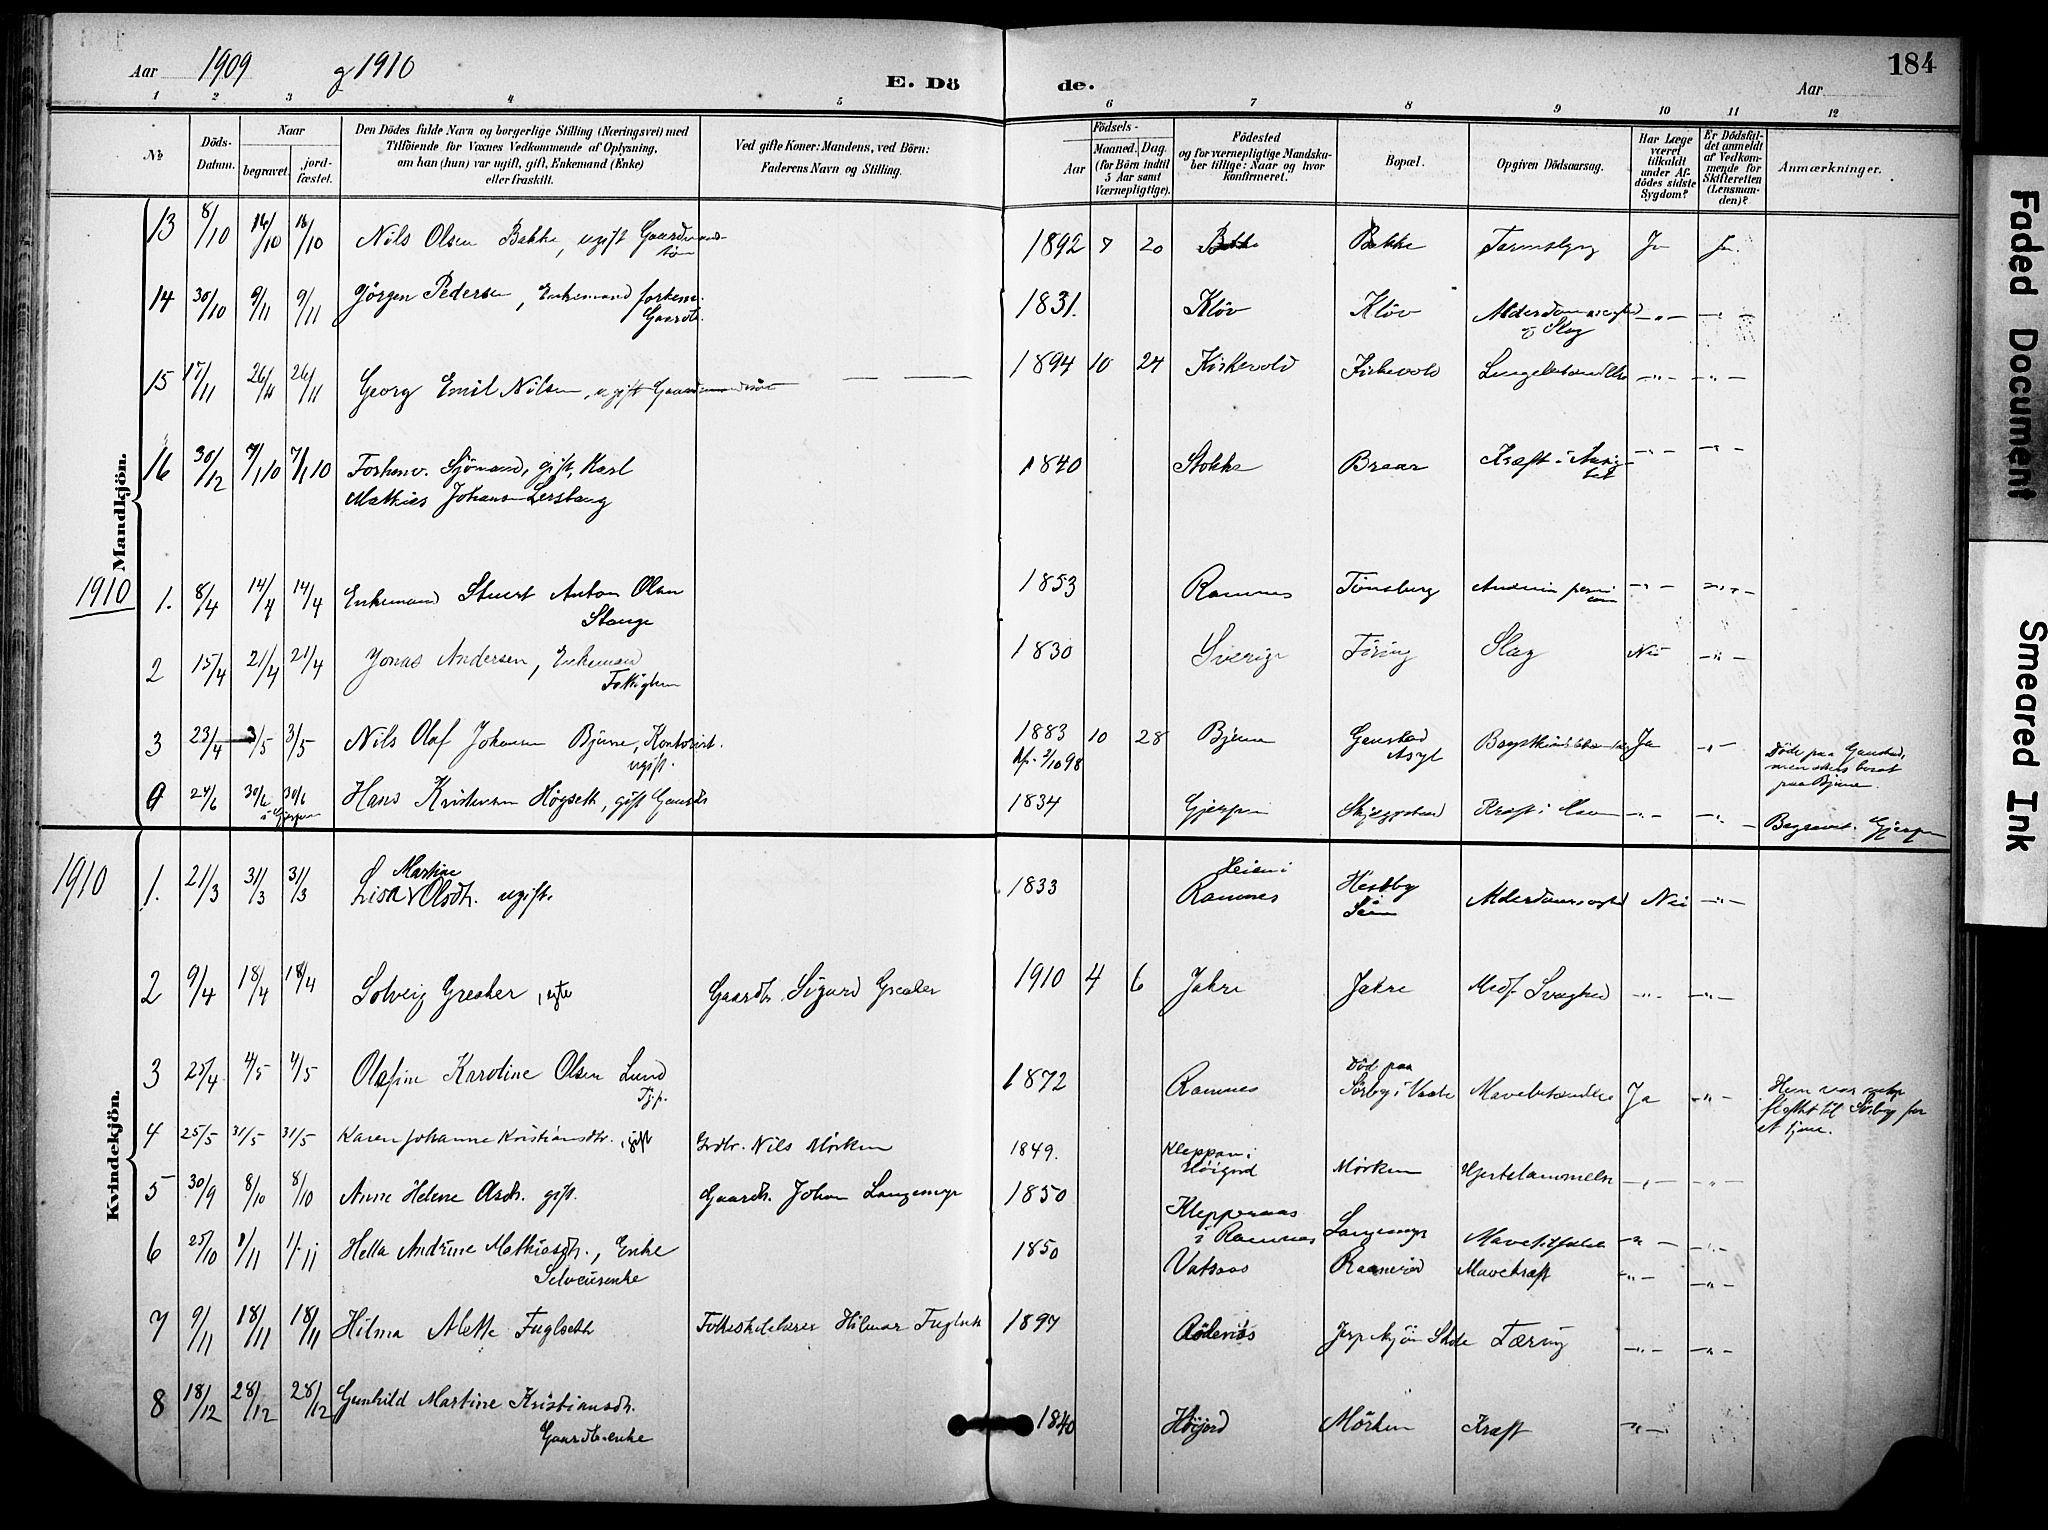 Aar 1909 og 1910
E. Dö de.
Aar
184
1 2 3 4 5 6 7 8 9 10 11 12
№
Döds-Datum.
Naar
begravet.
jord-fæstet.
Den Dödes fulde Navn og borgerlige Stilling (Næringsvei) med
Tilföiende for Voxnes Vedkommende af Oplysning,
om han (hun) var ugift, gift, Enkemand (Enke)
eller fraskilt.
Ved gifte Koner: Mandens, ved Börn:
Faderens Navn og Stilling.
Födsels-
Aar
Maaned. Dag.
(for Börn indtil
5 Aar samt
Værnepligtige).
Födested
og for værnepligtige Mandska-
ber tillige: Naar og hvor
konfirmeret.
Bopæl.
Opgiven Dödsaarsag.
Har Læge
været
tilkaldt
under Af-
dödes sidste
Sygdom?
Er Dödsfal-
det anmeldt
af Vedkom-
mende for
Skifteretten
(Lensman-
den)?
Anmærkninger.
Mandkjön.
13 8/10 16/10 16/10 Nils Olsen Bakke, ugift Gaardmands-
sön 1892 7 20 Bakke Bakke Ja Ja
14 30/10 9/11 9/11 Jörgen Pedersen, Enkemand forhenv.
Gaardbr. 1831. Klöv Klöv Alderdomssvaghed
og Slag -„- -„-
15 17/11 26/11 26/11 Georg Emil Nilsen, ugift Gaardmandssön — — 1894 10 24 Kirkevold Kirkevold Lungebetændelse -„- -„-
16 30/12 7/1 10 7/1 10 Forhenv. Sjömand, gift, Karl
Mathias Johansen 1840 Stokke Braar Kræft i Ansig-
tet -„- -„-
1910
1. 8/4 14/4 14/4 Enkemand Stuert Anton Olsen
Stange 1853 Ramnes Tönsberg -„- -„-
2 15/4 21/4 21/4 Jonas Andersen, Enkemand
Fattiglem 1830 Sverige Töring Slag Nei -„-
3 23/4 3/5 3/5 Nils Olaf Johansen Bjune, Kontorist.
ugift. 1883 10 28 Bjune Gaustad
Asyl Ja -„- Döde paa Gaustad,
men bosat
paa Bjune.
Kf. 2/10 98
24/6 30/6 30/6 Hans Kristensen Högseth, gift Gaardbr
i Gjerpen 1834 Gjerpen Skjeggestad Kræft i Maven -„- -„- Begravet i Gjerpen
1910
Kvindekjön.
1. 21/3 31/3 31/3 Lisa Martine Olsdtr. ugift. 1833 Heien i
Ramnes Hestby
Sem Alderdomssvaghed Nei -„-
2 9/4 18/4 18/4 Solveig Greaker, egte Gaardbr. Sigurd Greaker 1910 4 6 Jakre Jakre Medf. Svaghed -„- -„-
3 25/4 4/5 4/5 Olafine Karoline Olsen Lund
Tjp. 1872 Ramnes Död paa
Sörby i Vaale Mavebetændelse Ja -„- Hun var
flyttet til Sörby for
at tjene.
4 25/5 31/5 31/5 Karen Johanne Kristiansdtr. gift Grdbr. Nils Mörken 1849. Kleppan i
Höijord Mörken Hjertelammelse -„- -„-
5 30/9 8/10 8/10 Anne Helene Olsdtr. gift. Gaardbr. Johan Langemyr 1850 Kleppenaas
i Ramnes Langemyr -„- -„-
6 25/10 1/11 1/11 Hella Andrine Mathiasdtr., Enke
Selveierenke 1850 Vatsaas Mavekræft -„- -„-
7 9/11 18/11 18/11 Hilma Alette Fuglseth Folkeskolelærer Hilmar Fuglseth 1897 Rödenæs Jerpekjön Skole Tæring -„- -„-
8 18/12 28/12 28/12 Gunhild Martine Kristiansdtr.
Gaardbr.enke 1840 Höijord Mörken Kræft -„-
Faded Document
Smeared Ink